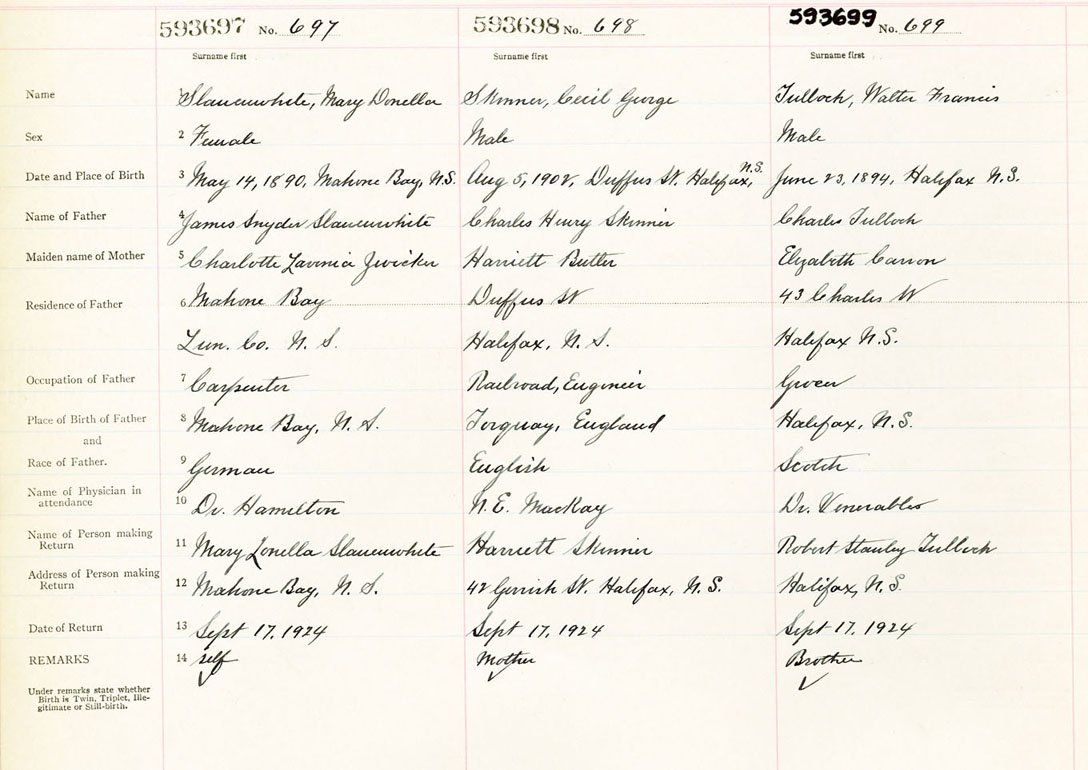 593697 No. 697 593698 No. 698 593699 No. 699
Surname first Surname first Surname first
Name 1 Slauenwhite, Mary Donella Skinner, Cecil George Tulloch, Walter Francis
Sex 2 Female Male Male
Date and Place of Birth 3 May 14, 1890, Mahone Bay, N.S. Aug 5, 1902, Duffus St. Halifax, N.S. June 23, 1894, Halifax N.S.
Name of Father 4 James Snyder Slauenwhite Charles Henry Skinner Charles Tulloch
Maiden name of Mother 5 Charlotte Lavenia Zwicker Harriett Butler Elizabeth Carron
Residence of Father 6 Mahone Bay Duffus St 43 Charles St
Lun. Co. N. S. Halifax, N. S. Halifax N.S.
Occupation of Father 7 Carpenter Railroad, Engineer Grocer
Place of Birth of Father 8 Mahone Bay, N. S. Torquay, England Halifax, N.S.
and
Race of Father. 9 German English Scotch
Name of Physician in attendance 10 Dr. Hamilton N. E. MacKay Dr. Venerables
Name of Person making Return 11 Mary Slauenwhite Harriett Skinner Robert Stanley Tulloch
Address of Person making Return 12 Mahone Bay, N. S. 42 Gerrish St. Halifax, N. S. Halifax, N.S.
Date of Return 13 Sept 17, 1924 Sept 17, 1924 Sept 17, 1924
REMARKS 14 self Mother Brother
Under remarks state whether
Birth is Twin, Triplet, Ille-
gitimate or Still-birth.